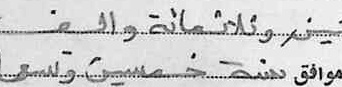 وثلاثمائة والف
موافق سنة خمسين وتسعما